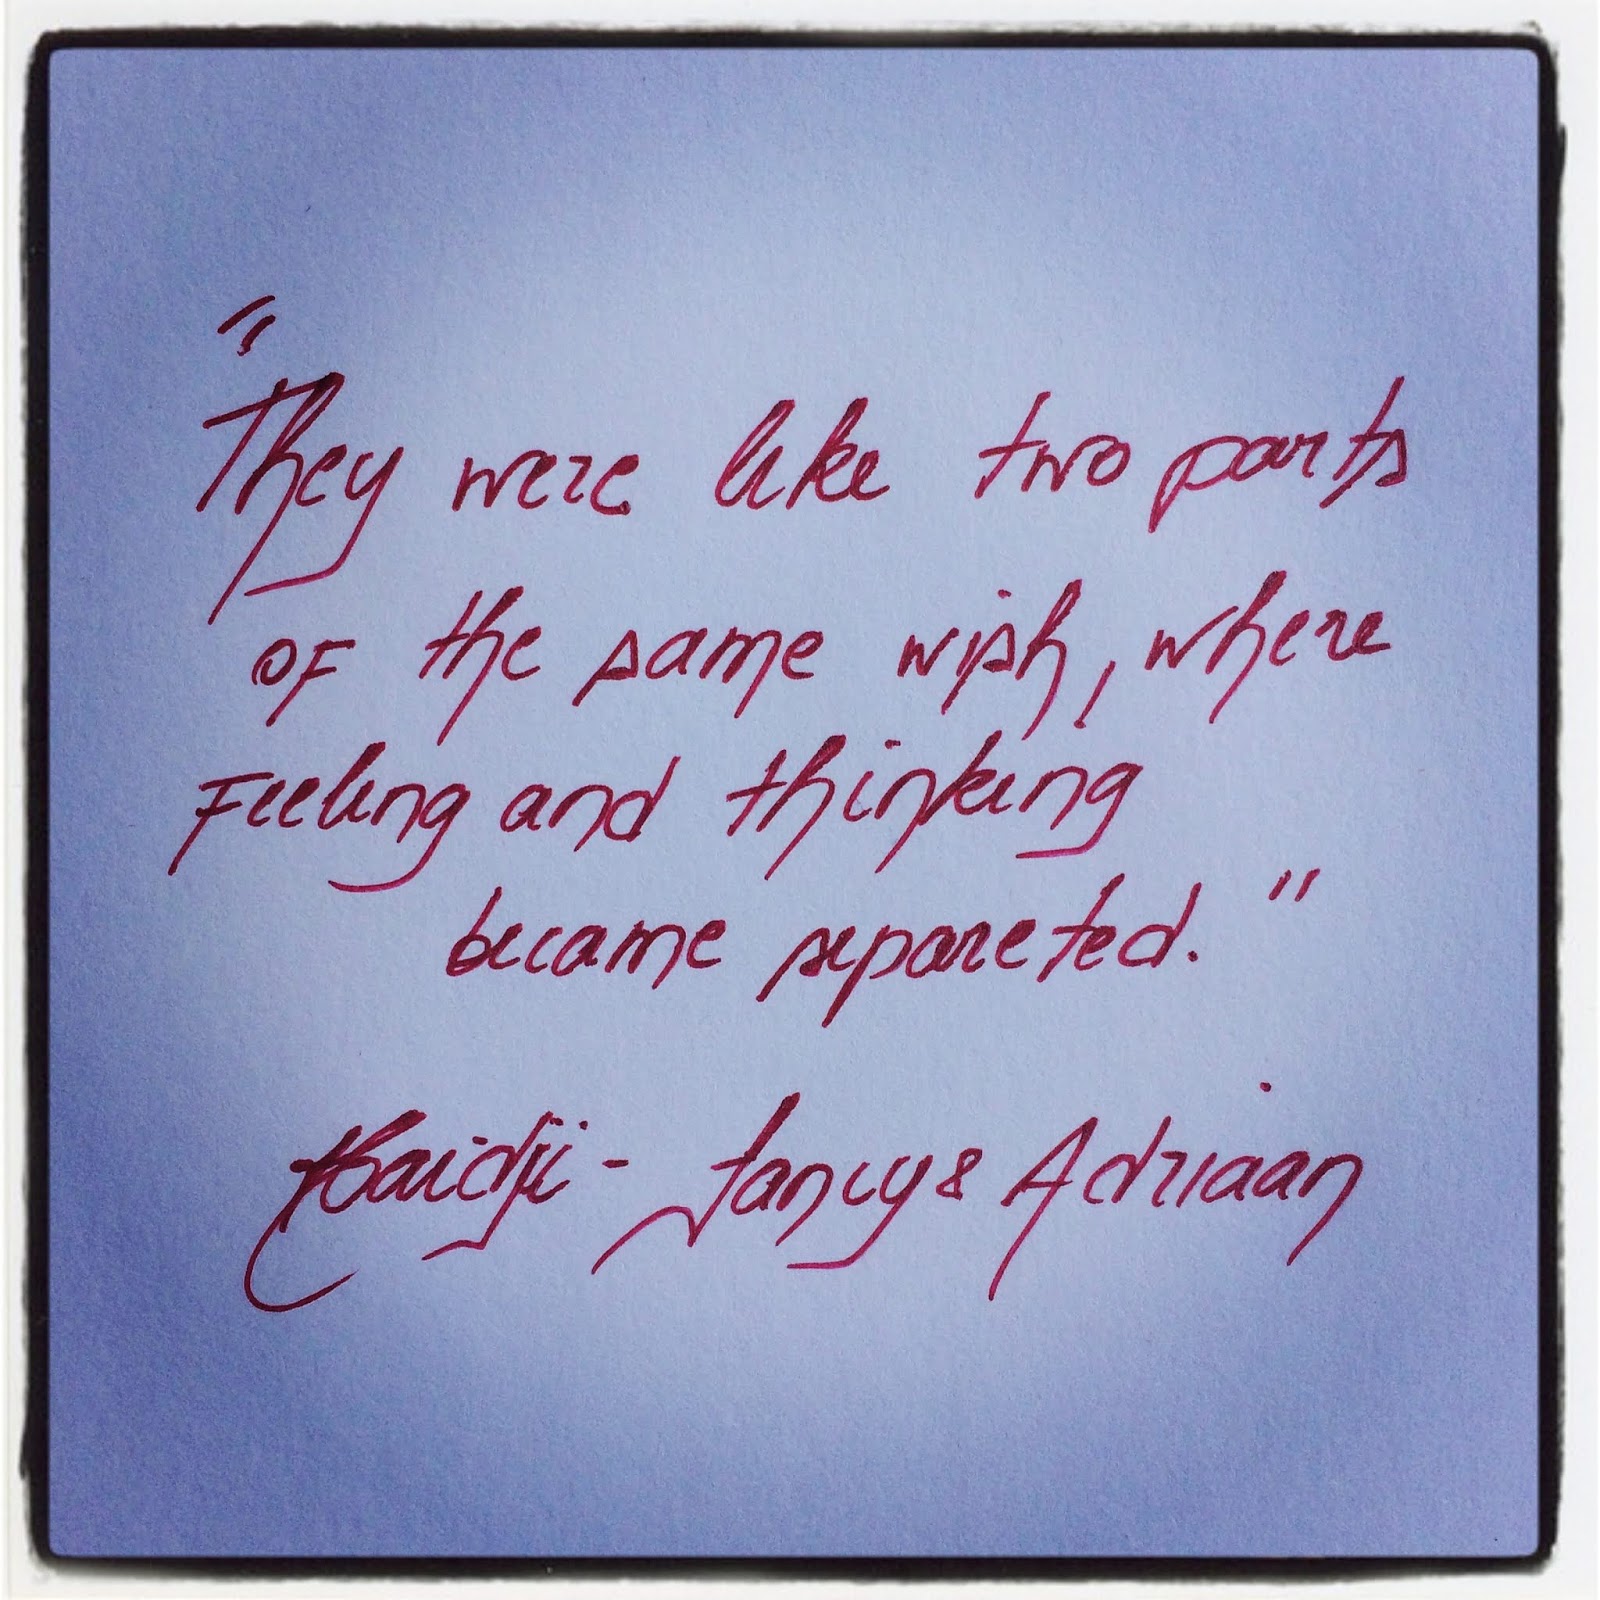 "They were like two parts
of the same wish, where
Feeling and thinking
became separeted."
Haidji - Fancy & Adriaan